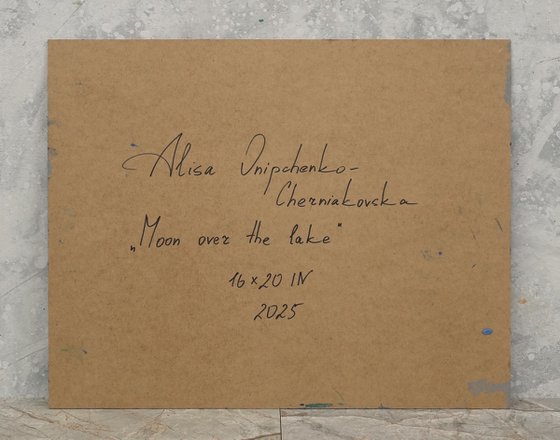 Alisa Onipchenko-
Cherniakovska
„Moon over the lake“
16×20 IN
2025